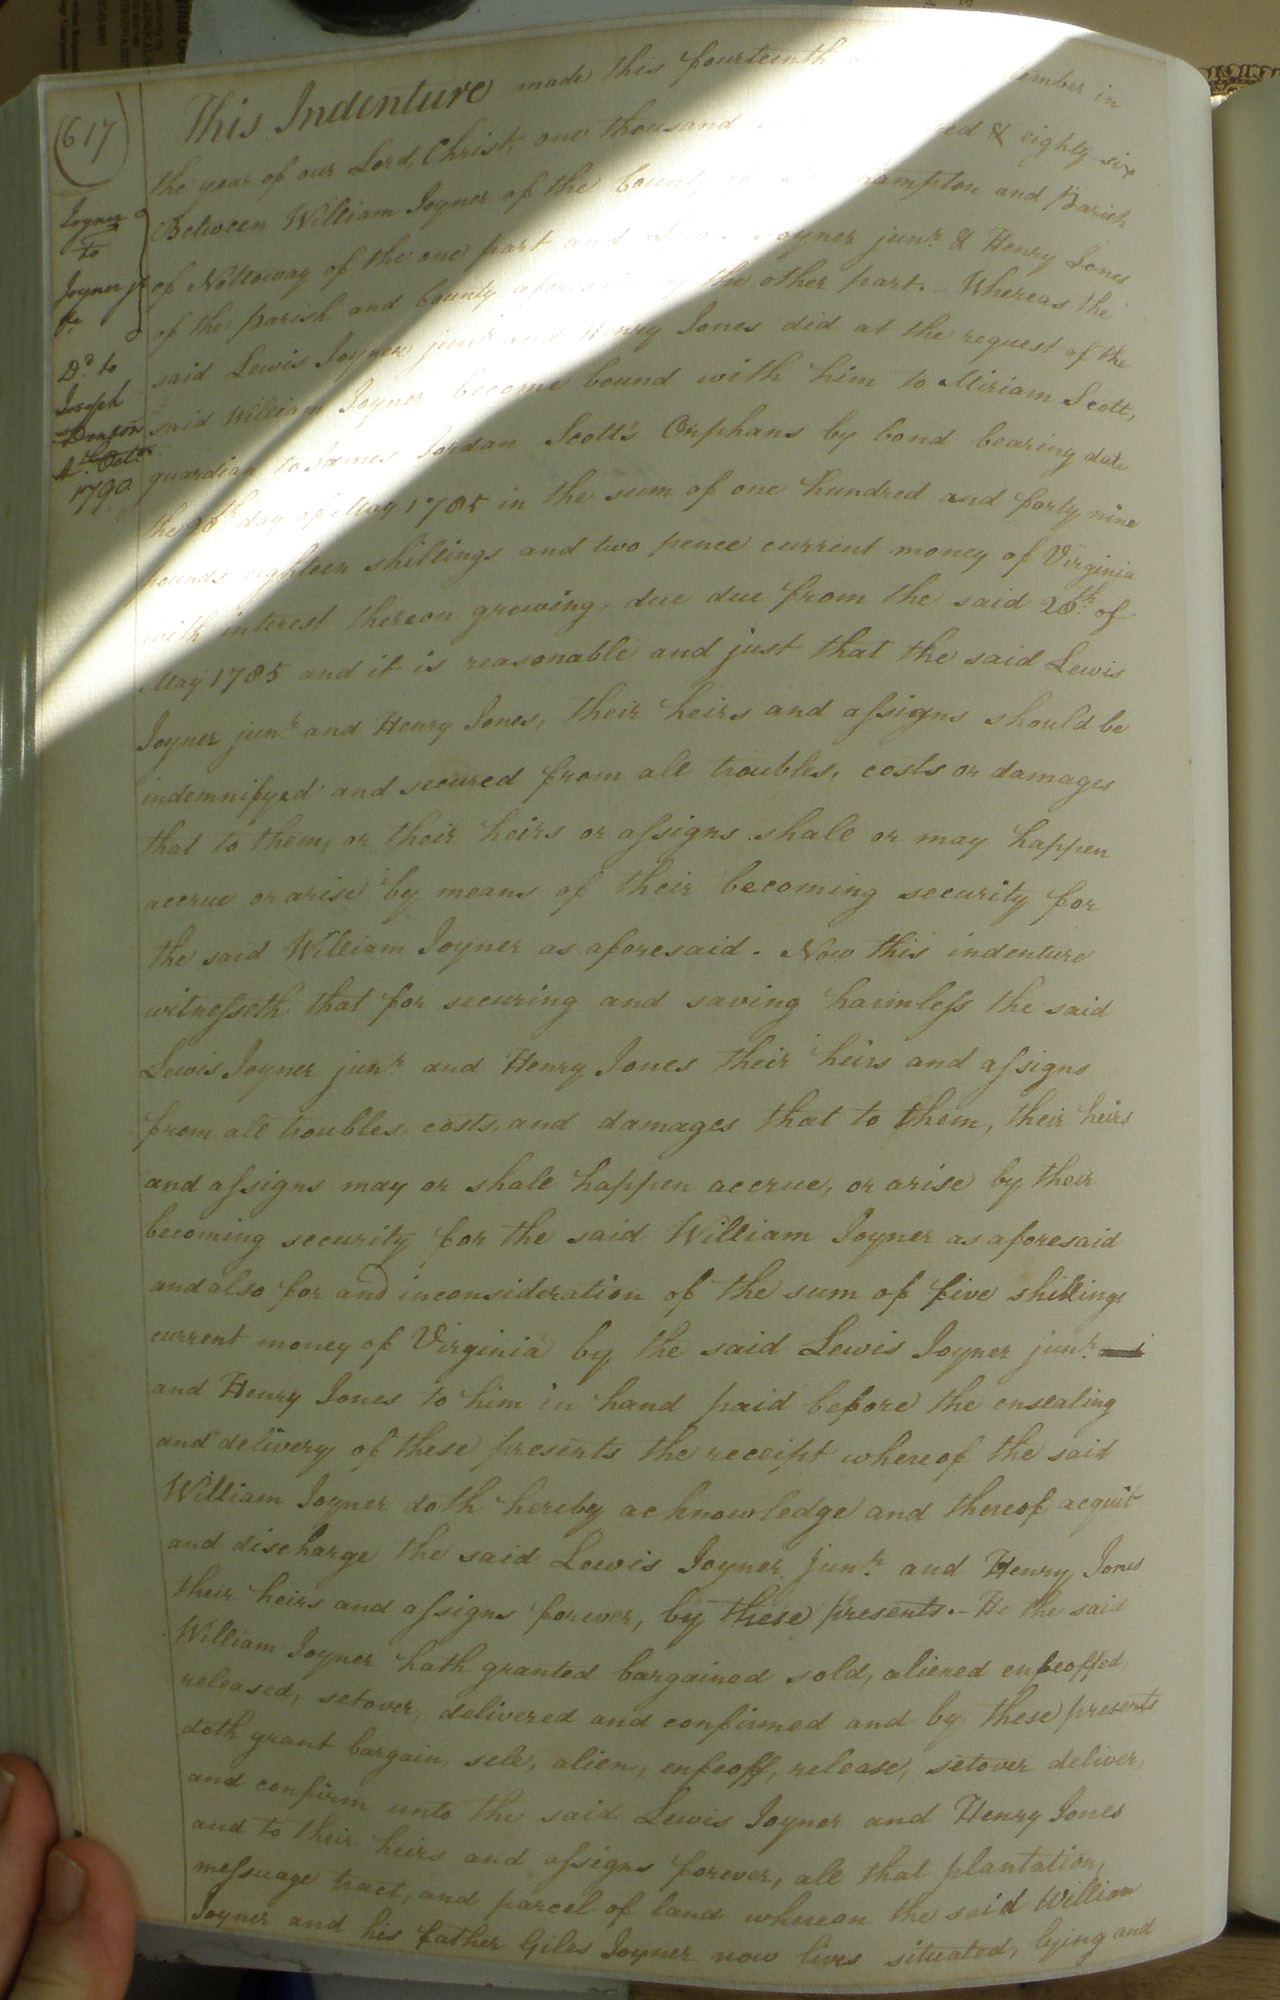 (617)
Joyner
to
Joyner jr
&c
Dd. to
Joseph
Denson
4th Octr
1790
This Indenture made this fourteenth ember in
the year of our Lord Christ, one thousand red & eighty six
Between William Joyner of the County of hampton and Parish
of Nottoway of the one part and Joyner junr. & Henry Jones
of the parish and County aforesaid of the other part. - Whereas the
said Lewis Joyner junr. and Henry Jones did at the request of the
said William Joyner become bound with him to Miriam Scott,
guardian to James Jordan Scott's Orphans by bond bearing date
the 28th day of May 1785 in the sum of one hundred and forty nine
pounds eighteen shillings and two pence current money of Virginia
with interest thereon growing, due due from the said 28th. of
May 1785 and it is reasonable and just that the said Lewis
Joyner junr. and Henry Jones, their heirs and assigns should be
indemnifyed and secured from all troubles, costs or damages
that to them, or their heirs or assigns shall or may happen
accrue or arise by means of their becoming security for
the said William Joyner as aforesaid. Now this indenture
witnesseth that for securing and saving harmless the said
Lewis Joyner junr. and Henry Jones their heirs and assigns
from all troubles, costs, and damages that to them, their heirs
and assigns may or shall happen accrue, or arise by their
becoming security for the said William Joyner as aforesaid
and also for and inconsideration of the sum of five shillings
current money of Virginia by the said Lewis Joyner junr.
and Henry Jones to him in hand paid before the ensealing
and delivery of these presents the receipt whereof the said
William Joyner doth hereby acknowledge and thereof acquit
and discharge the said Lewis Joyner junr. and Henry Jones
their heirs and assigns forever, by these presents. - He the said
William Joyner hath granted bargained sold, aliened enfeoffed,
released, setover, delivered and confirmed and by these presents
doth grant bargain sell, alien, enfeoff, release, setover deliver,
and confirm unto the said Lewis Joyner and Henry Jones
and to their heirs and assigns forever, all that plantation,
messuage tract, and parcel of land whereon the said William
Joyner and his father Giles Joyner now lives situated, lying and